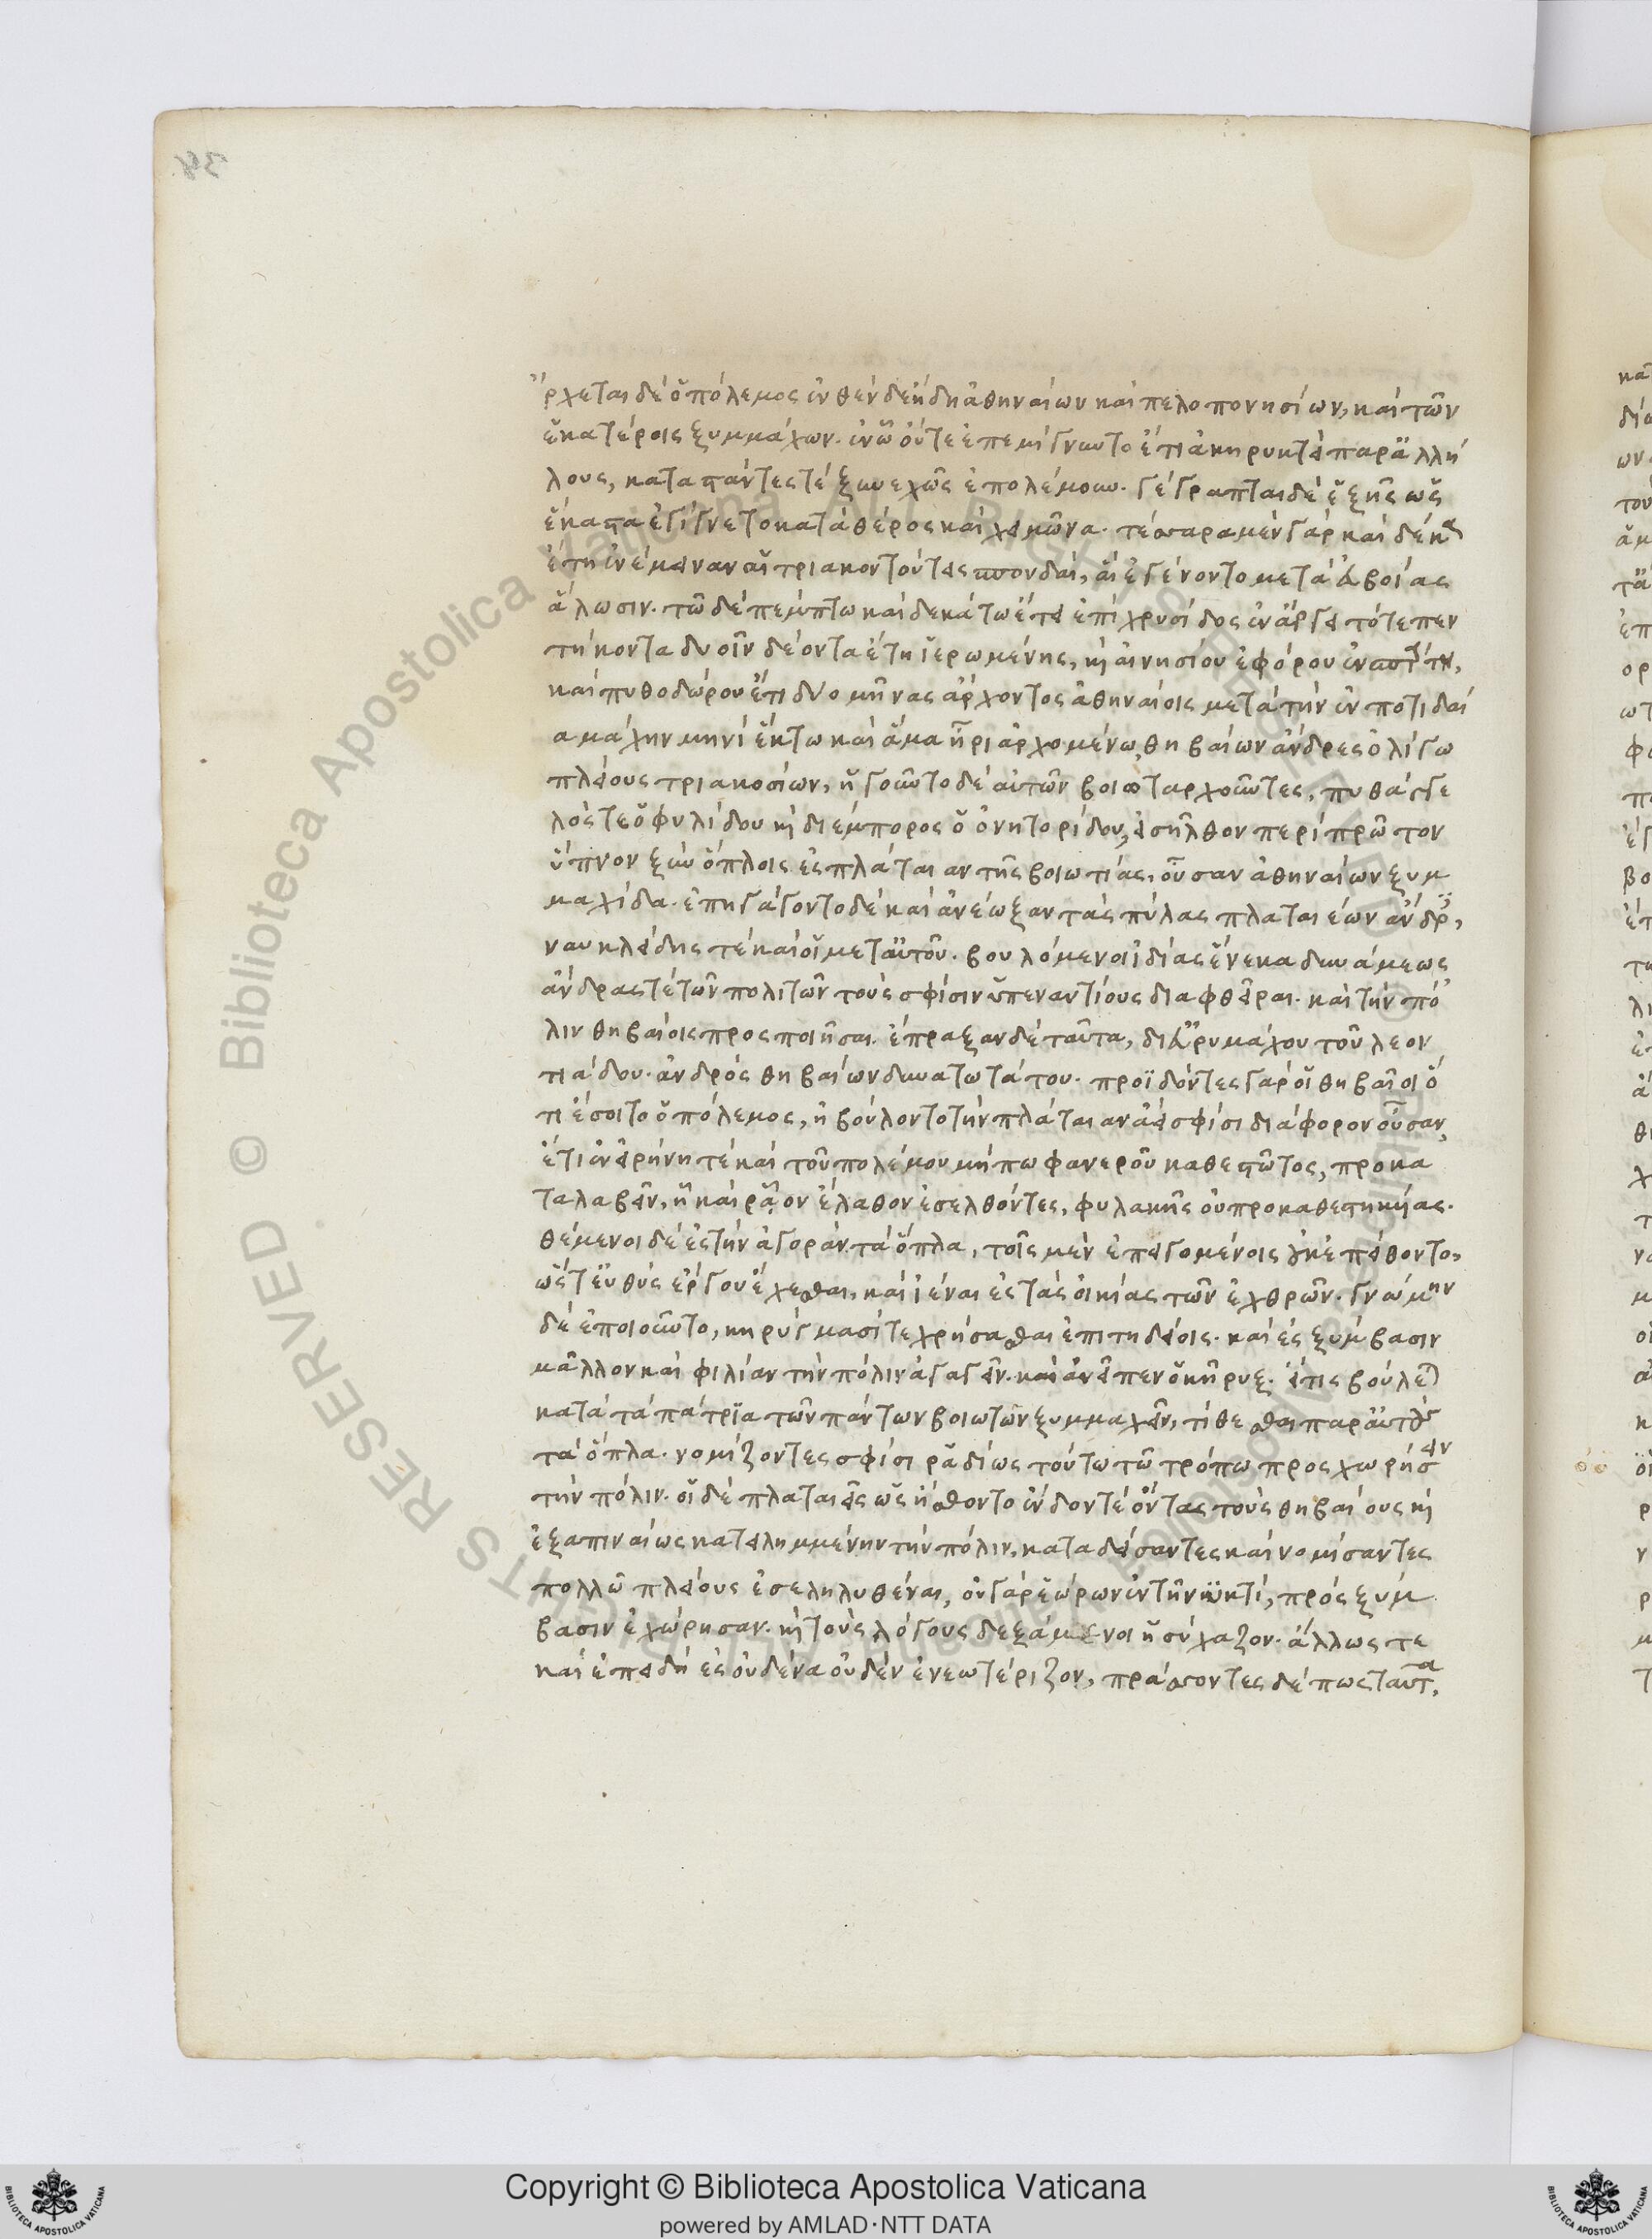 ρχεται δὲ ὁ πόλεμος ἐνθένδε ἤδη ἀθηναίων καὶ πελοποννησίων, καὶ τῶν
ἑκατέροις ξυμμάχων. ἐν ᾧ οὔτε ἐπεμίγνυντο ἔτι ἀκηρυκτεὶ παρ' ἀλλή
λους, καταστάντες τὲ ξυνεχῶς ἐπολέμουν. γέγραπται δὲ ἑξῆς ὡς
ἕκαστα ἐγίγνετο κατὰ θέρος καὶ χειμῶνα. τέσσαρα μὲν γὰρ καὶ δέκα
ἔτη ἐνέμειναν αἱ τριακοντούτεις σπονδαὶ, αἳ ἐγένοντο μετὰ εὐβοίας
ἅλωσιν. τῶ δὲ πέμπτω καὶ δεκάτω ἔτει ἐπὶ χρυσίδος ἐν ἄργει τότε πεν
τήκοντα δυοῖν δέοντα ἔτη ἱερωμένης, κὶ αἰνησίου ἐφόρου ἐν σπάρτη,
καὶ πυθοδώρου ἔτι δύο μῆνας ἄρχοντος ἀθηναίοις μετὰ τὴν ἐν ποτιδαί
α μάχην μηνὶ ἕκτω καὶ ἅμα ἦρι ἀρχομένω, θηβαίων ἄνδρες ὀλίγω
πλείους τριακοσίων, ἡγοῦντο δὲ αὐτῶν βοιωταρχοῦντες, πυθάγγε
λός τε ὁ φυλίδου κὶ διέμπορος ὁ ὀνητορίδου, ἐσῆλθον περὶ πρῶτον
ὕπνον ξὺν ὅπλοις ἐς πλάταιαν τῆς βοιωτίας, οὖσαν ἀθηναίων ξυμ
μαχίδα. ἐπηγάγοντο δὲ καὶ ἀνέωξαν τὰς πύλας πλαταιέων ἄνδρες,
ναυκλείδης τὲ καὶ οἱ μετ' αὐτοῦ. βουλόμενοι ἰδίας ἕνεκα δυνάμεως
ἄνδρας τὲ τῶν πολιτῶν τοὺς σφίσιν ὑπεναντίους διαφθεῖραι. καὶ τὴν πό
λιν θηβαίοις προσποιῆσαι. ἔπραξαν δὲ ταῦτα, δι' εὐρυμάχου τοῦ λεον
τιάδου. ἀνδρὸς θηβαίων δυνατωτάτου. προϊδόντες γὰρ οἱ θηβαῖοι ὅ
τι ἔσοιτο ὁ πόλεμος, ἠβούλοντο τὴν πλάταιαν ἀεὶ σφίσι διάφορον οὖσαν,
ἔτι ἐν εἰρήνη τὲ καὶ τοῦ πολέμου μήπω φανεροῦ καθεστῶτος, προκα
ταλαβεῖν, ἧ καὶ ρᾷον ἔλαθον ἐσελθόντες, φυλακῆς οὐ προκαθεστηκυίας.
θέμενοι δὲ ἐς τὴν ἀγορὰν τὰ ὅπλα, τοῖς μὲν ἐπαγομένοις οὐκ ἐπείθοντο,
ὥστ' εὐθὺς ἔργου ἔχεσθαι, καὶ ἰέναι ἐς τὰς οἰκίας τῶν ἐχθρῶν. γνώμην
δὲ ἐποιοῦντο, κηρύγμασί τε χρήσασθαι ἐπιτηδείοις. καὶ ἐς ξύμβασιν
μᾶλλον καὶ φιλίαν τὴν πόλιν ἀγαγεῖν. καὶ ἀνεῖπεν ὁ κῆρυξ. εἴτις βούλεται
κατὰ τὰ πάτρια τῶν πάντων βοιωτῶν ξυμμαχεῖν, τίθεσθαι παρ' αὐτοὺς
τὰ ὅπλα. νομίζοντες σφίσι ραδίως τούτω τῶ τρόπω προσχωρήσειν
τὴν πόλιν. οἱ δὲ πλαταιεῖς ὡς ἤσθοντο ἔνδον τὲ ὄντας τοὺς θηβαίους κὶ
ἐξαπιναίως κατειλημμένην τὴν πόλιν, καταδείσαντες καὶ νομίσαντες
πολλῶ πλείους ἐσεληλυθέναι, οὐ γὰρ ἑώρων ἐν τῆ νυκτὶ, πρὸς ξύμ
βασιν ἐχώρησαν. κὶ τοὺς λόγους δεξάμενοι ἡσύχαζον. ἄλλως τε
καὶ ἐπειδὴ ἐς οὐδένα οὐδὲν ἐνεωτέριζον, πράσσοντες δέ πως ταῦτα,
Copyright © Biblioteca Apostolica Vaticana
powered by AMLAD·NTT DATA